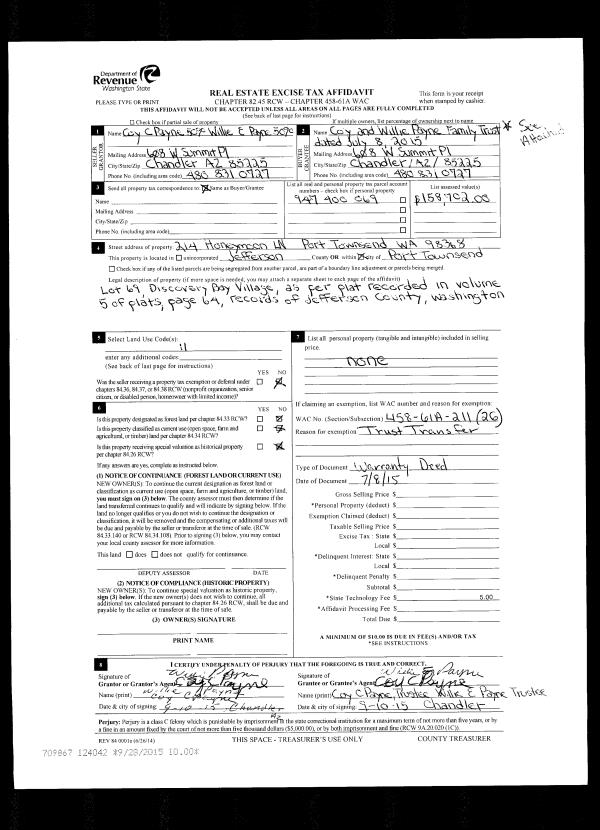 Department of
Revenue
Washington State
PLEASE TYPE OR PRINT
REAL ESTATE EXCISE TAX AFFIDAVIT
CHAPTER 82.45 RCW – CHAPTER 458-61A WAC
This form is your receipt
when stamped by cashier.
THIS AFFIDAVIT WILL NOT BE ACCEPTED UNLESS ALL AREAS ON ALL PAGES ARE FULLY COMPLETED
(See back of last page for instructions)
☐ Check box if partial sale of property
If multiple owners, list percentage of ownership next to name.
1 Name Coy C Payne 50% Willie E Payne 50%
SELLER GRANTOR
Mailing Address 608 W Summit Pl
City/State/Zip Chandler AZ 85225
Phone No. (including area code) 480 831 0727
2 Name Coy and Willie Payne Family Trust * See Attached
dated July 8, 2015
BUYER GRANTEE
Mailing Address 608 W Summit Pl
City/State/Zip Chandler/AZ/ 85225
Phone No. (including area code) 480 831 0727
3 Send all property tax correspondence to: ☒ Same as Buyer/Grantee
Name
Mailing Address
City/State/Zip
Phone No. (including area code)
List all real and personal property tax parcel account
numbers – check box if personal property
947 400 069
List assessed value(s)
$158,702.00
4 Street address of property: 214 Honeymoon LN Port Townsend WA 98368
This property is located in ☐ unincorporated Jefferson County OR within ☒ city of Port Townsend
☐ Check box if any of the listed parcels are being segregated from another parcel, are part of a boundary line adjustment or parcels being merged.
Legal description of property (if more space is needed, you may attach a separate sheet to each page of the affidavit)
Lot 69, Discovery Bay Village, as per plat recorded in volume
5 of plats, page 64, records of Jefferson County, Washington
5 Select Land Use Code(s):
11
enter any additional codes:
(See back of last page for instructions)
YES NO
Was the seller receiving a property tax exemption or deferral under
chapters 84.36, 84.37, or 84.38 RCW (nonprofit organization, senior
citizen, or disabled person, homeowner with limited income)? ☐ ☒
6 YES NO
Is this property designated as forest land per chapter 84.33 RCW? ☐ ☒
Is this property classified as current use (open space, farm and
agricultural, or timber) land per chapter 84.34 RCW? ☐ ☒
Is this property receiving special valuation as historical property
per chapter 84.26 RCW? ☐ ☒
If any answers are yes, complete as instructed below.
(1) NOTICE OF CONTINUANCE (FOREST LAND OR CURRENT USE)
NEW OWNER(S): To continue the current designation as forest land or
classification as current use (open space, farm and agriculture, or timber) land,
you must sign on (3) below. The county assessor must then determine if the
land transferred continues to qualify and will indicate by signing below. If the
land no longer qualifies or you do not wish to continue the designation or
classification, it will be removed and the compensating or additional taxes will
be due and payable by the seller or transferor at the time of sale. (RCW
84.33.140 or RCW 84.34.108). Prior to signing (3) below, you may contact
your local county assessor for more information.
This land ☐ does ☐ does not qualify for continuance.
DEPUTY ASSESSOR DATE
(2) NOTICE OF COMPLIANCE (HISTORIC PROPERTY)
NEW OWNER(S): To continue special valuation as historic property,
sign (3) below. If the new owner(s) does not wish to continue, all
additional tax calculated pursuant to chapter 84.26 RCW, shall be due and
payable by the seller or transferor at the time of sale.
(3) OWNER(S) SIGNATURE
PRINT NAME
7 List all personal property (tangible and intangible) included in selling
price.
none
If claiming an exemption, list WAC number and reason for exemption:
WAC No. (Section/Subsection) 458-61A-211 (2G)
Reason for exemption Trust Transfer
Type of Document Warranty Deed
Date of Document 7/8/15
Gross Selling Price $
*Personal Property (deduct) $
Exemption Claimed (deduct) $
Taxable Selling Price $
Excise Tax : State $
Local $
*Delinquent Interest: State $
Local $
*Delinquent Penalty $
Subtotal $
*State Technology Fee $ 5.00
*Affidavit Processing Fee $
Total Due $
A MINIMUM OF $10.00 IS DUE IN FEE(S) AND/OR TAX
*SEE INSTRUCTIONS
8 I CERTIFY UNDER PENALTY OF PERJURY THAT THE FOREGOING IS TRUE AND CORRECT.
Signature of
Grantor or Grantor's Agent Coy C Payne
Name (print) Willie E Payne
Coy C Payne
Date & city of signing: 9-10-15 Chandler
Signature of Willie E Payne
Grantee or Grantee's Agent Coy C Payne
Name (print) Coy C Payne, Trustee Willie E Payne Trustee
Date & city of signing: 9-10-15 Chandler
Perjury: Perjury is a class C felony which is punishable by imprisonment in the state correctional institution for a maximum term of not more than five years, or by
a fine in an amount fixed by the court of not more than five thousand dollars ($5,000.00), or by both imprisonment and fine (RCW 9A.20.020 (1C)).
REV 84 0001a (6/26/14)
THIS SPACE - TREASURER'S USE ONLY
COUNTY TREASURER
709867 124042 *9/28/2015 10.00*